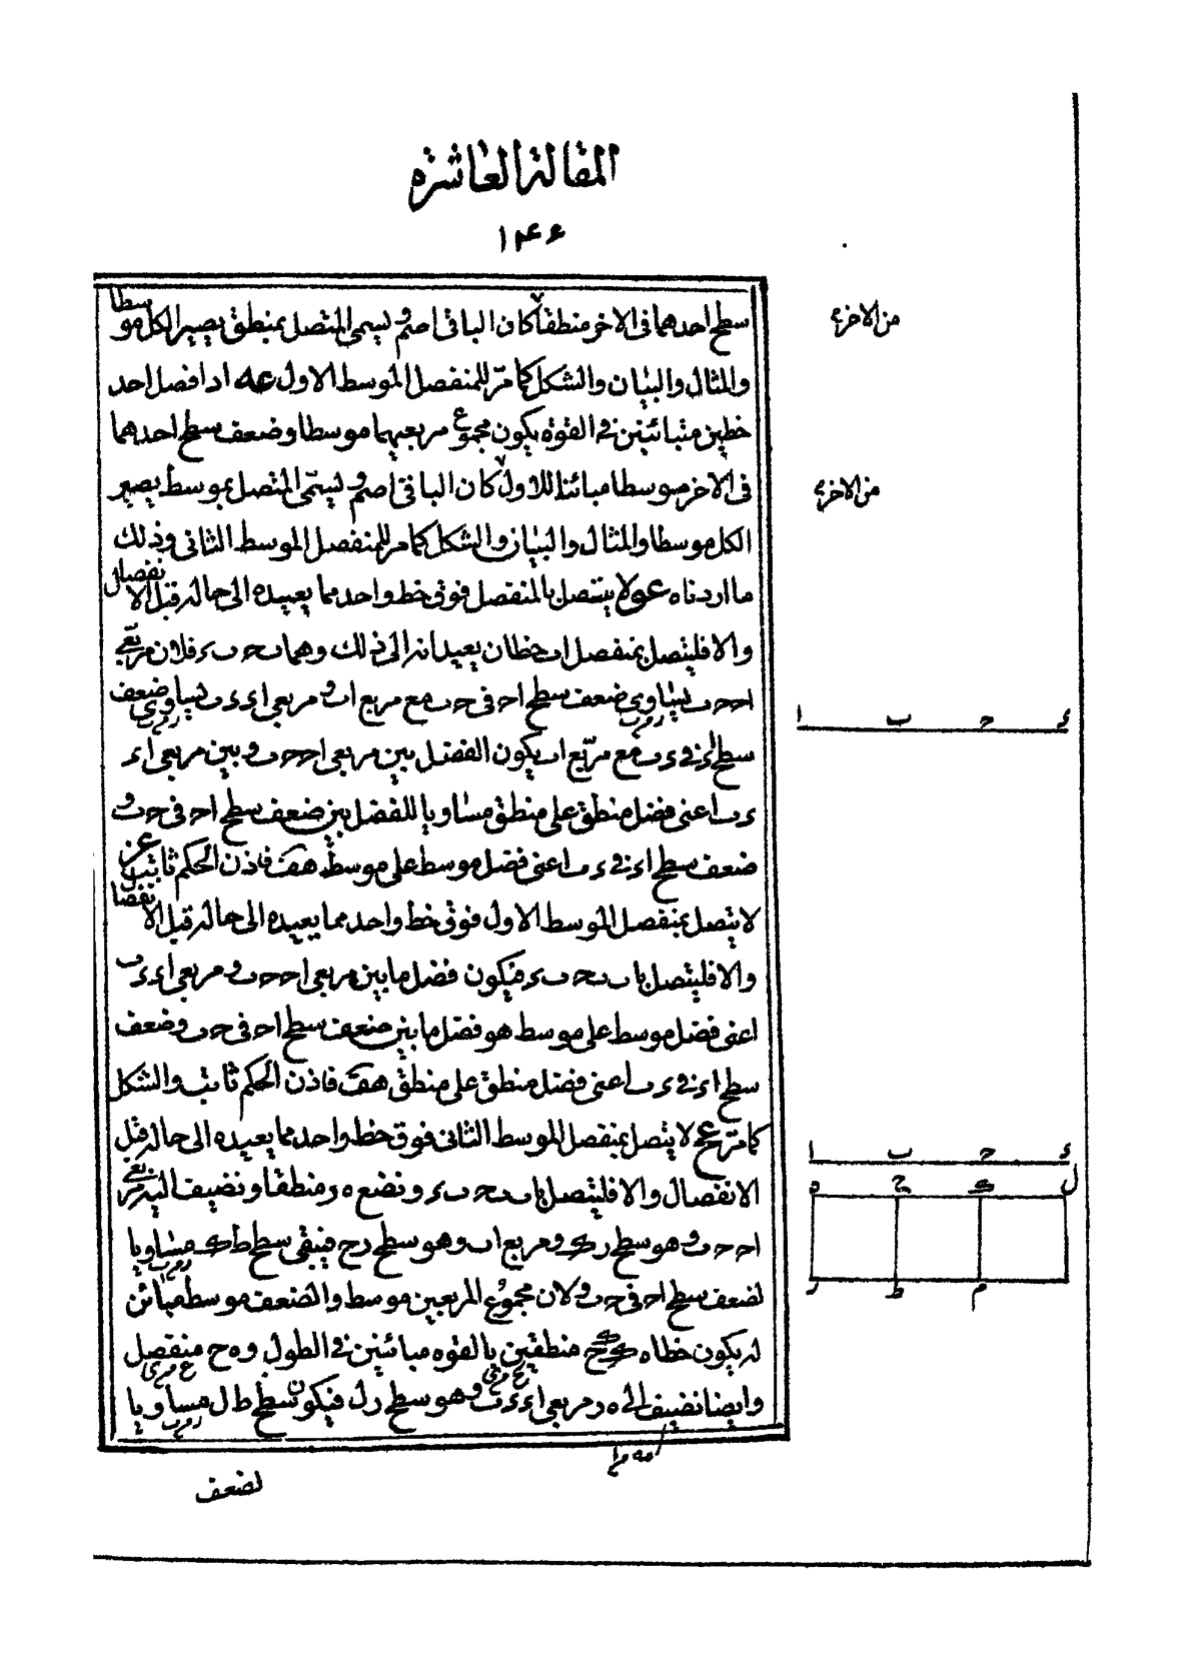 المقالة العاشرة
١٤٦
سطح احدهما فى الاخر منطقا كان الباقى اصم و يسمى المتصل بمنطق يصير الكل موسطا
والمثال والبيان والشكل كما مر للمنفصل الموسط الاول عه اذا فصل احد
خطين متبائنين فى القوة يكون مجموع مربعيهما موسطا وضعف سطح احدهما
فى الاخر موسطا مبائنا للاول كان الباقى اصم و يسمّى المتصل بموسط يصير
الكل موسطا والمثال والبيان والشكل كما مر للمنفصل الموسط الثانى وذلك
ما اردناه عو لا يتصل بالمنفصل فوق خط واحد مما يعيده الى حاله قبل الانفصال
والا فليتصل بمنفصل اب خطان يعيدانه الى ذلك وهما بح بء فلان مربعى
اح حب يساوى ضعف سطح اح فى حب مع مربع اب و مربعى اء ءب يساوى ضعف
سطح اء فى ءب مع مربّع اب يكون الفضل بين مربعى اح حب و بين مربعى اء
ءب اعنى فضل منطق على منطق مساويا للفضل بين ضعف سطح اح فى حب و
ضعف سطح اء فى ءب اعنى فضل موسط على موسط هف فاذن الحكم ثابت عز
لا يتصل بمنفصل الموسط الاول فوق خط واحد مما يعيده الى حاله قبل الانفصال
والا فليتصل باب بح بء فيكون فضل ما بين مربعى اح حب و مربعى اء ءب
اعنى فضل موسط على موسط هو فضل ما بين ضعف سطح اح فى حب وضعف
سطح اء فى ءب اعنى فضل منطق على منطق هف فاذن الحكم ثابت والشكل
كما مرّ عح لا يتصل بمنفصل الموسط الثانى فوق خط واحد مما يعيده الى حاله قبل
الانفصال والا فليتصل باب بح بء و نضع ه ر منطقا و نضيف اليه مربعى
اح حب و هو سطح رك و مربع اب وهو سطح رح فيبقى سطح طك مساويا
لضعف سطح اح فى حب و لان مجموع المربعين موسط والضعف موسط مبائن
له يكون خطا ه ك ك ح منطقين بالقوه مبائنين فى الطول و ه ح منفصل
وايضا نضيف الى ه ر مربعى اء ءب وهو سطح رل فيكون سطح طل مساويا
لضعف
من الاخرء
من الاخرء
ا ب ح ء
ا ب ح ء
ه ح ك ل
ر ط م